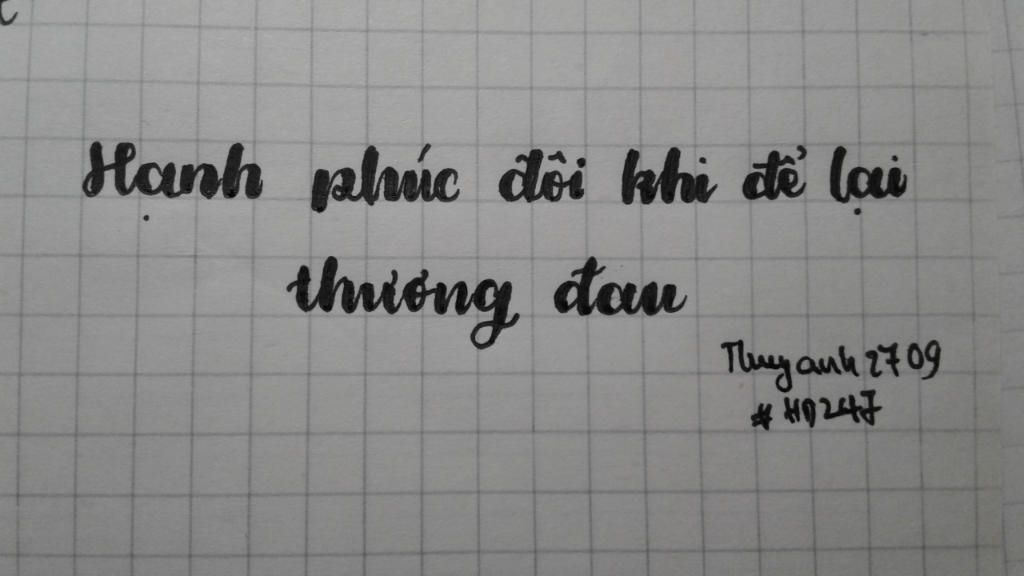 Hạnh phúc đôi khi để lại
thương đau
Thuyanh2709
#HD247